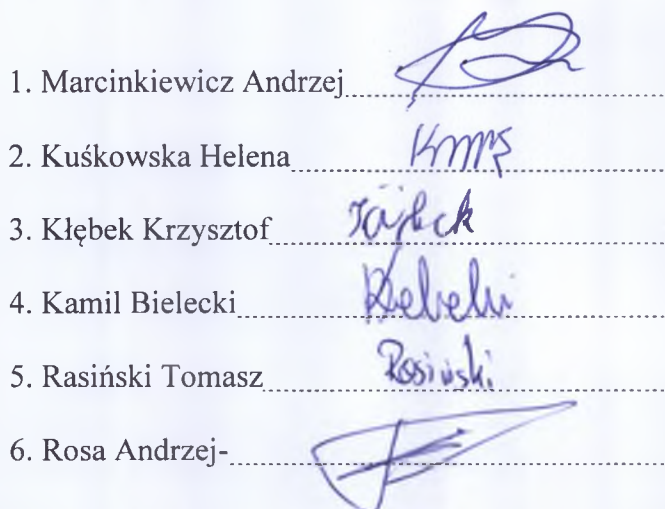 1. Marcinkiewicz Andrzej
2. Kuśkowska Helena
3. Kłębek Krzysztof
4. Kamil Bielecki
5. Rasiński Tomasz Rosiński
6. Rosa Andrzej-